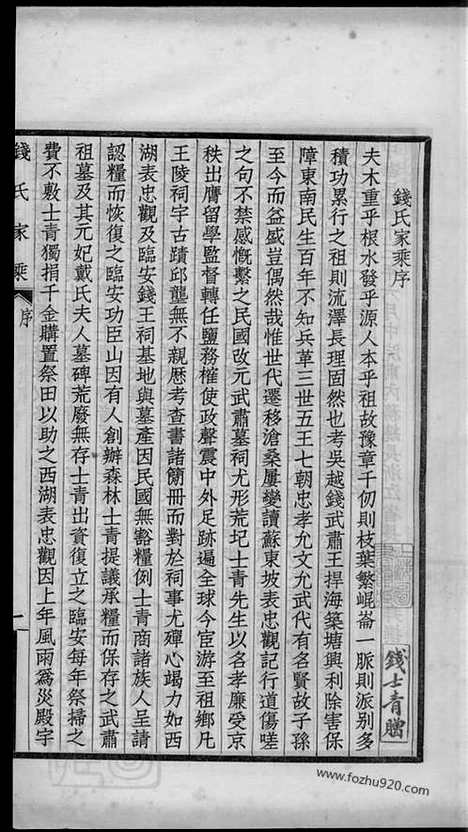 錢氏家乘序
夫木重乎根水發乎源人本乎祖故豫章千仞則枝葉繁崐崙一脈則派別多
積功累行之祖則流澤長理固然也考吳越錢武肅王捍海築塘興利除害保
障東南民生百年不知兵革三世五王七朝忠孝允文允武代有名賢故子孫
至今而益盛豈偶然哉惟世代遷移滄桑屢變讀蘇東坡表忠觀記行道傷嗟
之句不禁感慨繫之民國改元武肅墓祠尤形荒圮士青先生以名孝廉受京
秩出膺留學監督轉任鹽務榷使政聲震中外足跡遍全球今宦游至祖鄉凡
王陵祠宇古蹟邱壟無不親歷考查書諸簡冊而對於祠事尤殫心竭力如西
湖表忠觀及臨安錢王祠基地與墓產因民國無豁糧例士青商諸族人呈請
認糧而恢復之臨安功臣山因有人創辦森林士青提議承糧而保存之武肅
祖墓及其元妃戴氏夫人墓碑荒廢無存士青出資復立之臨安每年祭掃之
費不敷士青獨捐千金購置祭田以助之西湖表忠觀因上年風雨為災殿宇
錢氏家乘
序
一
錢士青贈
www.fozhu920.com